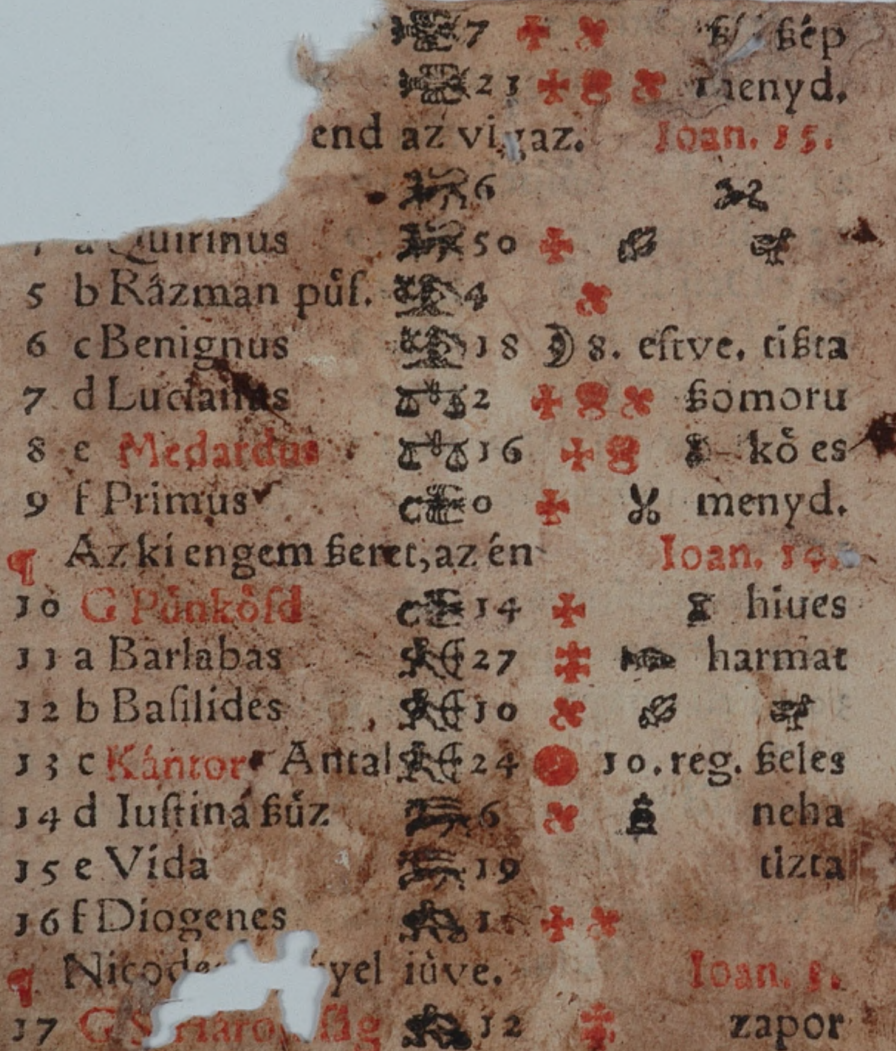 7 ßép
21 menyd.
end az vigaz. Ioan. 15.
6
a Quirinus 50
5 b Rázman pűſ. 4
6 c Benignus 18 8. eſtve. tißta
7 d Lucianus 2 ßomoru
8 e Medardus 16 kȯ es
9 f Primus 0 menyd.
¶ Az ki engem ßeret, az én Ioan. 14.
10 G Pu̇nkȯſd 14 hiues
11 a Barlabas 27 harmat
12 b Baſilides 10
13 c Kántor Antal 24 10. reg. ßeles
14 d Iuſtina ßűz 6 neha
15 e Vida 19 tizta
16 f Diogenes
¶ yel iu̇ve. Ioan. 3.
17 G 12 zapor